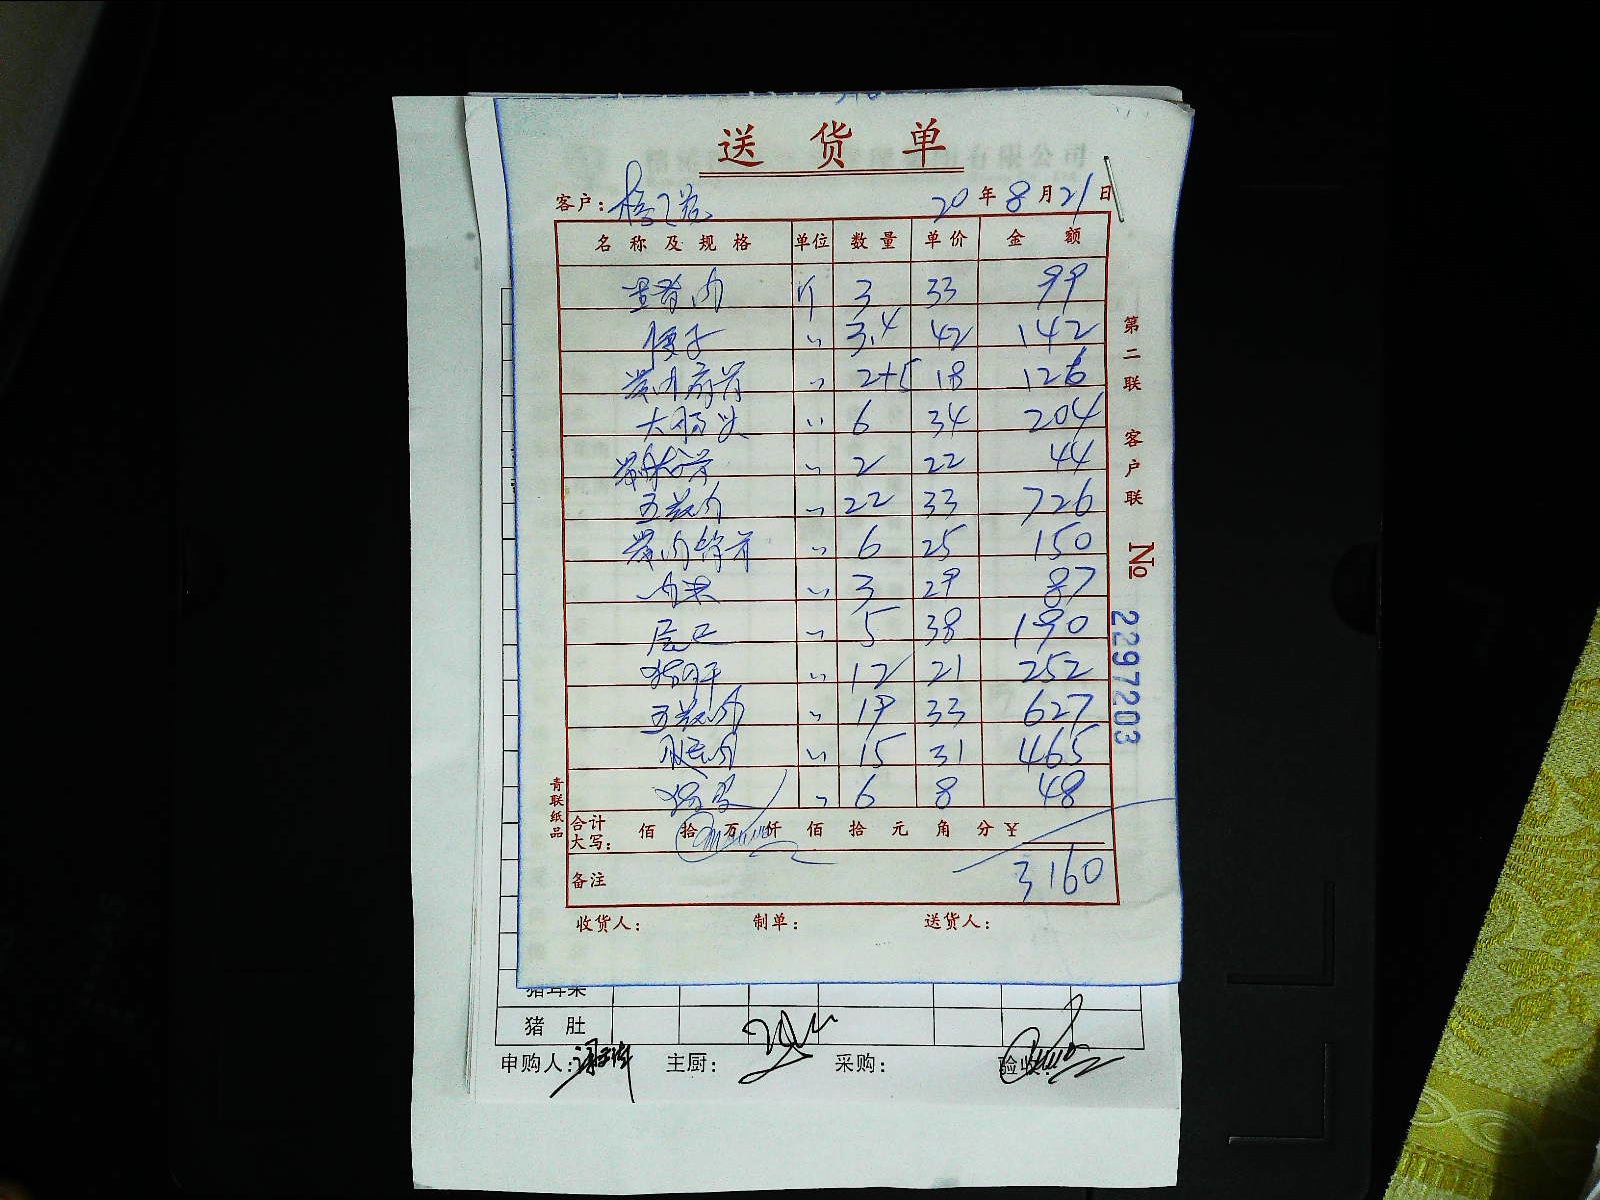 送货单
客户：
20年8月21日
名称及规格 单位 数量 单价 金额
里脊肉 斤 3 33 99
腰子 〃 3.4 42 142
2+5 18 126
大肠头 〃 6 34 204
〃 2 22 44
五花肉 〃 22 33 726
〃 6 25 150
〃 3 29 87
〃 5 38 190
猪肝 〃 12 21 252
五花肉 〃 19 33 627
〃 15 31 465
〃 6 8 48
合计大写： 佰 拾 万 仟 佰 拾 元 角 分 ￥
备注 3160
收货人： 制单： 送货人：
第二联 客户联 № 2297203
青联纸品
猪肚
申购人： 主厨： 采购： 验收：